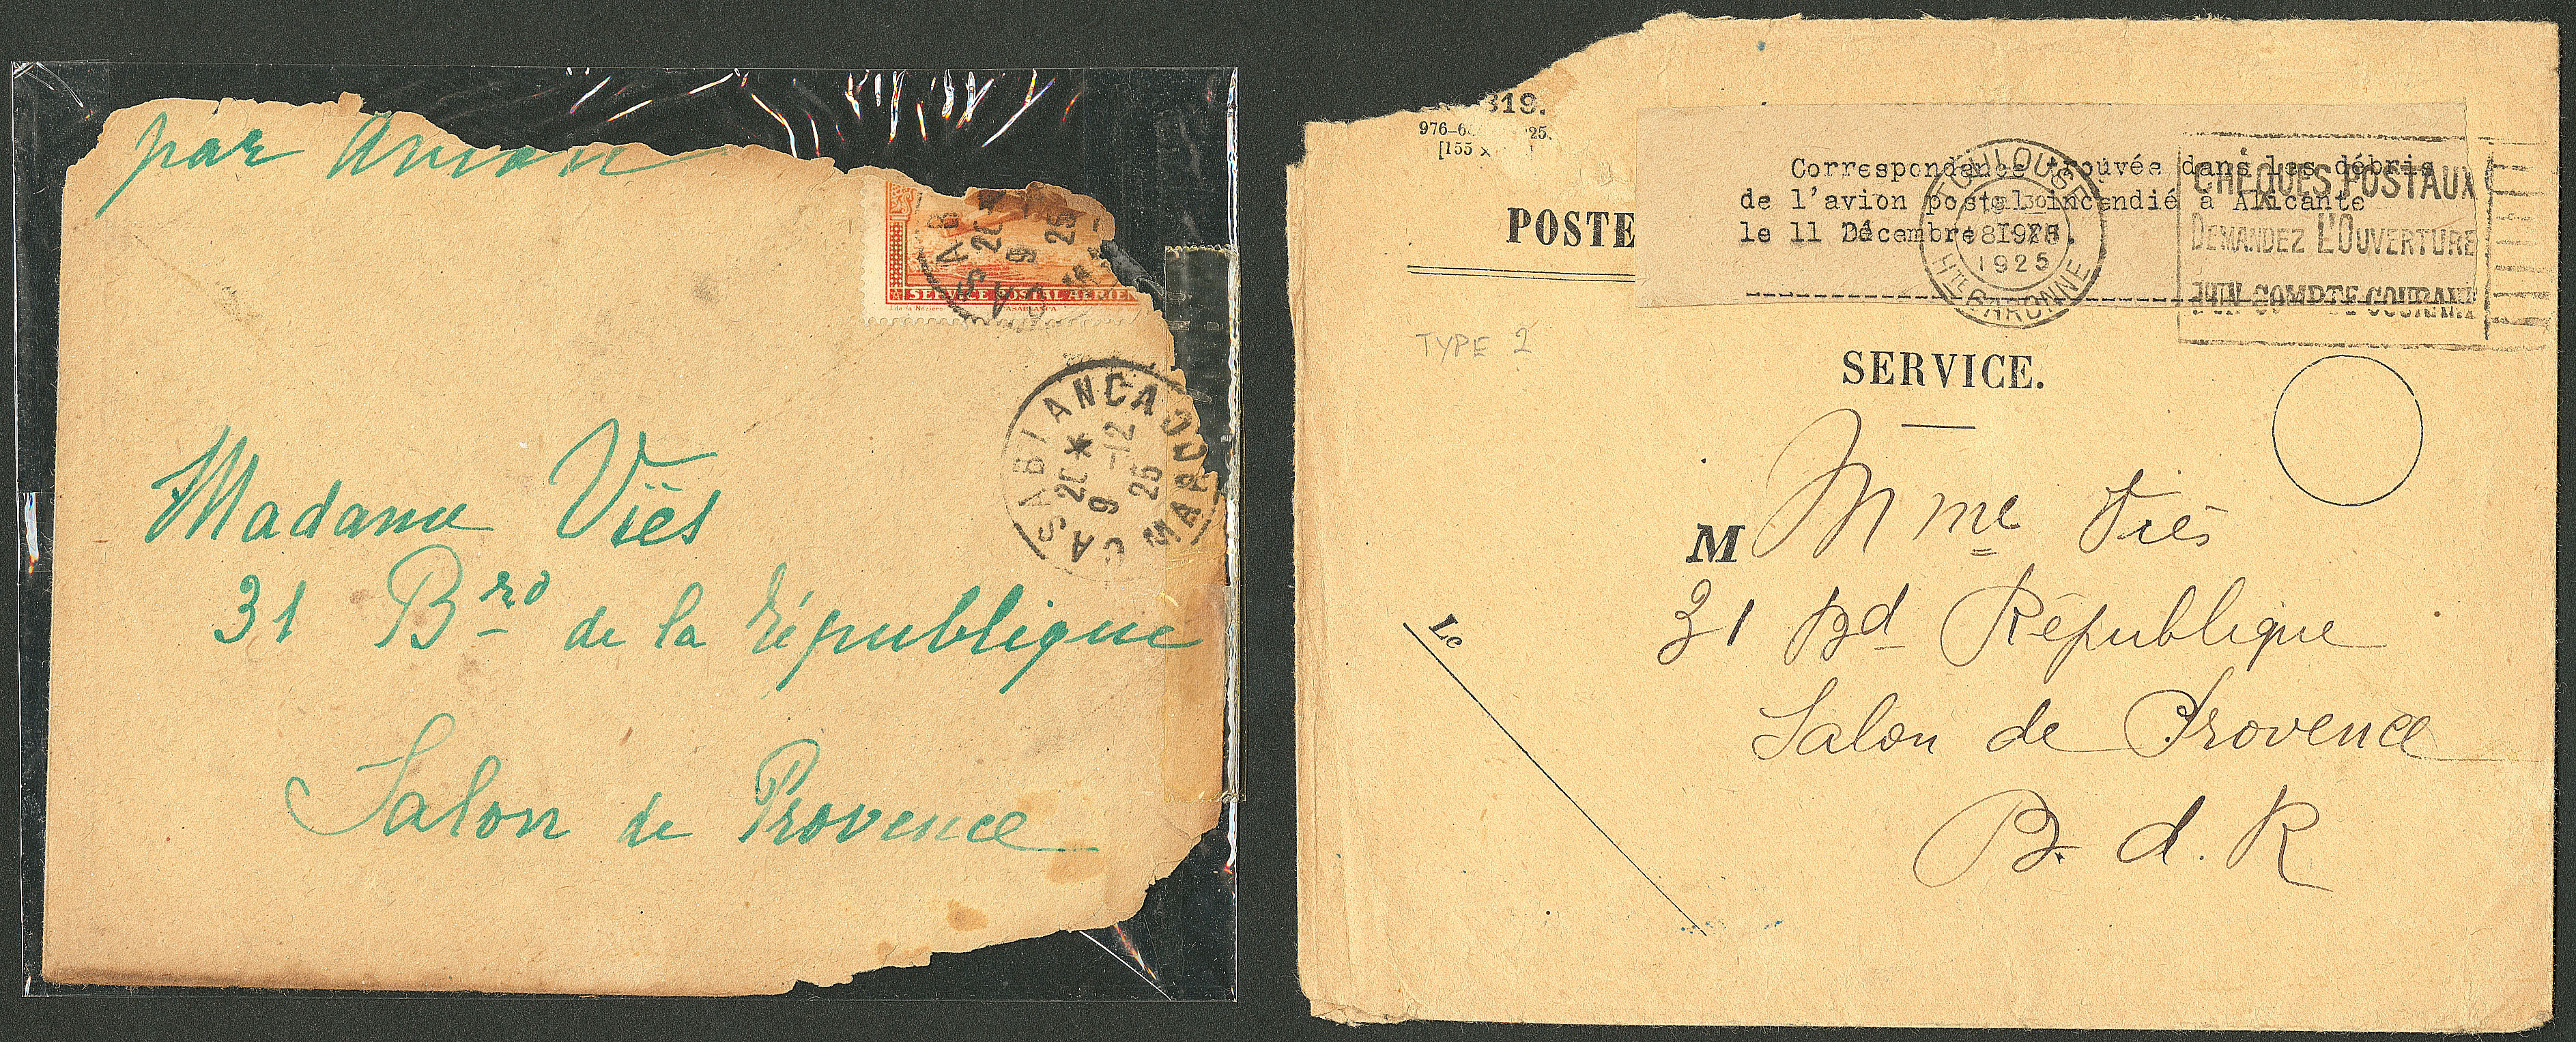 par Avion
SERVICE POSTAL AERIEN
CASABLANCA
CASAB
20
9
25
CASABLANCA
MAROC
20*
9 -12
25
Madame Viès
31 Brd de la République
Salon de Provence
319.
976-6 25.
[155 x
POSTE
Correspondance trouvée dans les débris
de l'avion postal incendié à Alicante
le 11 Décembre 1925.
TOULOUSE
1925
HTE GARONNE
CHÈQUES POSTAUX
DEMANDEZ L'OUVERTURE
D'UN COMPTE COURANT
TYPE 2
SERVICE.
M Mme Viès
31 Bd République
Salon de Provence
B. d. R
Le